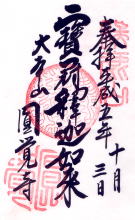 奉拝平成五年
十月
三日
寶冠釋迦如来
大本山
圓覺寺